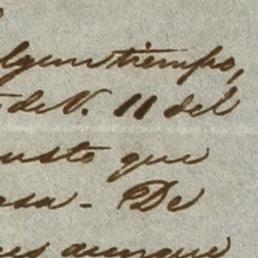 lgun tiempo,
de N. 11 del
usto que
sa - De
es aunque